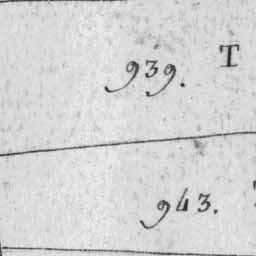 939. T
943.